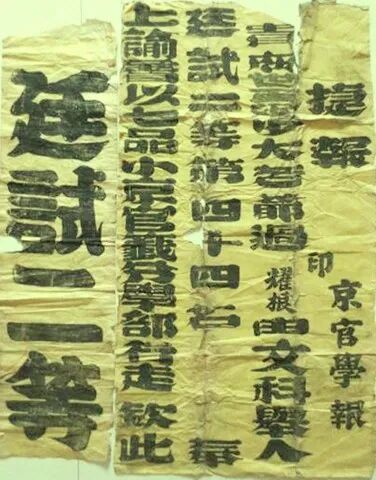 捷報 印 京官學報
少大老爺過 耀根 由文科舉人
廷試二等第四十四名 奉
上諭著以七品小京官籤分學部行走 欽此
廷試二等